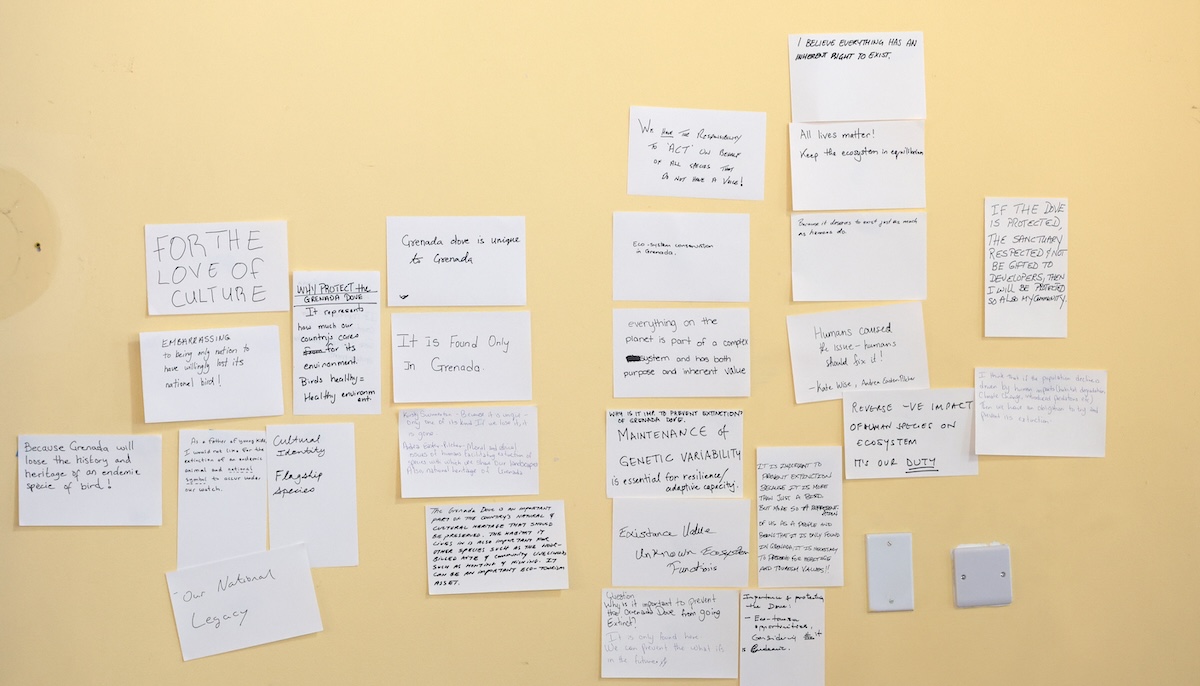 FOR THE
LOVE OF
CULTURE
EMBARRASSING
to being only nation to
have willingly lost its
national bird!
Because Grenada will
loose the history and
heritage of an endemic
specie of bird!
As a father of young kids,
I would not like for the
extinction of an endemic
animal and national
symbol to occur under
our watch.
Cultural
Identity
Flagship
Species
- Our National
Legacy
WHY PROTECT the
GRENADA DOVE
It represents
how much our
country's cares
for its
environment.
Birds healthy =
Healthy environm
ent.
Grenada dove is unique
to Grenada
It Is Found Only
In Grenada.
Because it is unique -
only one of its kind. If we lose it, it
is gone.
Moral and ethical
issues of human facilitating extinction of
species with which we share our landscapes
Also natural heritage of Grenada
The Grenada Dove is an important
part of the country's natural &
cultural heritage that should
be preserved. The habitat it
lives in is also important for
other species such as the hook-
billed kite & community livelihoods
such as hunting & fishing. It
can be an important eco-tourism
asset.
We have the responsibility
to 'ACT' on behalf
of all species that
do not have a voice!
Eco-system conservation
in Grenada.
everything on the
planet is part of a complex
system and has both
purpose and inherent value
WHY IS IT IMP. TO PREVENT EXTINCTION
OF GRENADA DOVE.
MAINTENANCE of
GENETIC VARIABILITY
is essential for resilience/
adaptive capacity.
Existance Value
Unknown Ecosystem
Functions
Question
Why is it important to prevent
the Grenada Dove from going
Extinct?
It is only found here.
We can prevent the what ifs
in the future
I BELIEVE EVERYTHING HAS AN
INHERENT RIGHT TO EXIST.
All lives matter!
Keep the ecosystem in equilibrium
Because it deserves to exist just as much
as humans do.
Humans caused
the issue - humans
should fix it!
- Kate Wise,
REVERSE -VE IMPACT
OF HUMAN SPECIES ON
ECOSYSTEM
IT'S OUR DUTY
IT IS IMPORTANT TO
PREVENT EXTINCTION
BECAUSE IT IS MORE
THAN JUST A BIRD
BUT MADE SO A REPRESENT-
ATION
OF US AS A PEOPLE AND
IT IS ONLY FOUND
IN GRENADA IT IS NECESSARY
TO PRESERVE FOR
AND TOURISM VALUES!!
Importance of protecting
the Dove:
- Eco-tourism
opportunities.
Considering it
is Endemic.
IF THE DOVE
IS PROTECTED,
THE SANCTUARY
RESPECTED & NOT
BE GIFTED TO
DEVELOPERS, THEN
I WILL BE PROTECTED
SO ALSO MY COMMUNITY.
I think that if the population decline is
driven by human impacts (habitat degradation
Climate Change, introduced predators etc)
Then we have an obligation to try and
prevent its extinction.